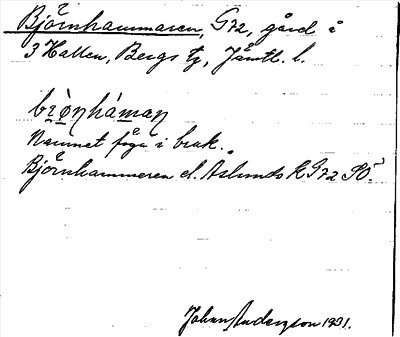 Björnhammaren, G72, gård i
3 Hallen, Bergs tg, Jämtl. l.
brònhámaŋ
Namnet föga i bruk.
Björnhammeren el. Aslunds G72 SO.
Johan Anderzson 1901.